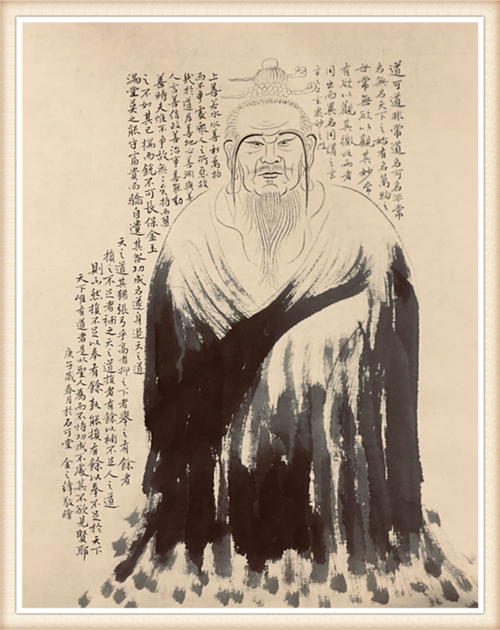 道可道非常道名可名非常
名無名天下之始有名萬物之
母常無欲以觀其妙常
有欲以觀其徼此兩者
同出而異名同謂之玄
玄之又玄
上善若水水善利萬物
而不爭處衆人之所惡故
幾於道居善地心善淵與善
人言善信政善治事善能動
善時夫惟不爭故無尤持而盈
之不如其已揣而銳不可長保金玉
滿堂莫之能守富貴而驕自遺其咎功成名遂身退天之道
天之道其猶張弓乎高者抑之下者舉之有餘者
損之不足者補之天之道損有餘以補不足人之道
則不然損不足以奉有餘孰能損有餘以奉不足於天下
天下唯有道者是以聖人為而不恃功成不處其不欲見賢耶
庚子歲春月於石可堂 金之敬繪